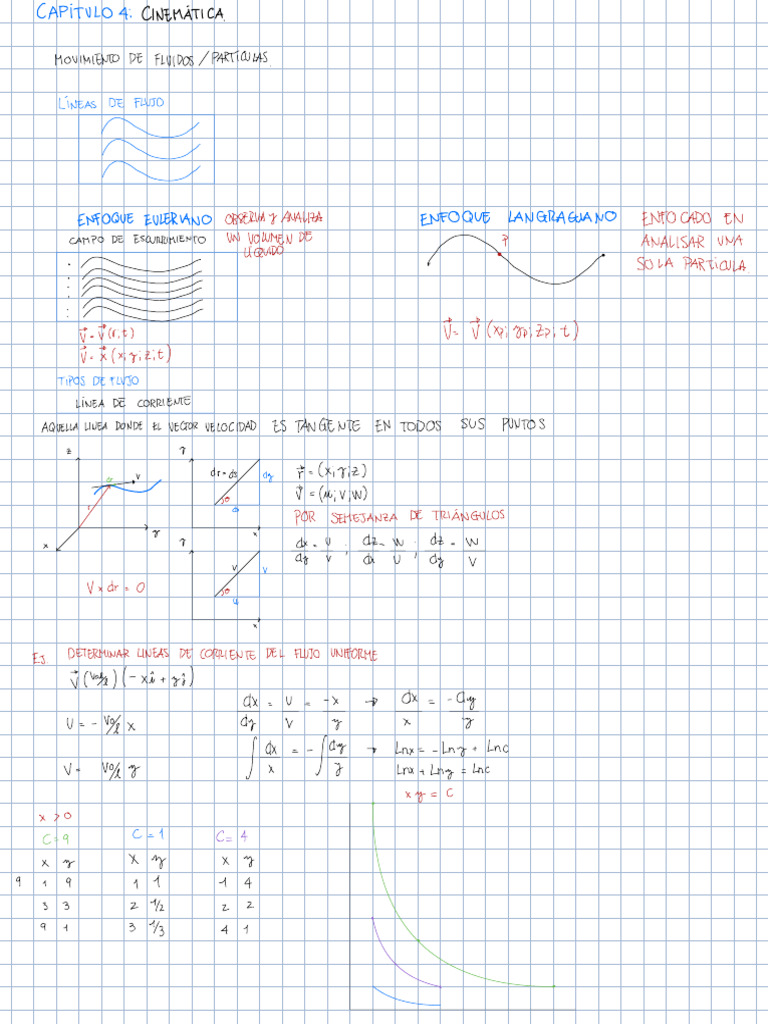 CAPÍTULO 4: CINEMÁTICA
MOVIMIENTO DE FLUIDOS / PARTÍCULAS
LÍNEAS DE FLUJO
ENFOQUE EULERIANO
OBSERVA Y ANALIZA
UN VOLUMEN DE
LÍQUIDO
CAMPO DE ESCURRIMIENTO
V⃗ = V⃗ (r, t)
V⃗ = x⃗ (x, y, z, t)
ENFOQUE LANGRAGUANO
ENFOCADO EN
ANALISAR UNA
SOLA PARTÍCULA
P
V⃗ = V⃗ (xp; yp; zp; t)
TIPOS DE FLUJO
LÍNEA DE CORRIENTE
AQUELLA LINEA DONDE EL VECTOR VELOCIDAD ES TANGENTE EN TODOS SUS PUNTOS
z
v
r
y
x
V × dr = 0
y
dr = ds
dy
θ
x
y
V
V
θ
u
x
r⃗ = (x, y, z)
V⃗ = (u, v, w)
POR SEMEJANZA DE TRIÁNGULOS
dx/dy = U/V ; dz/dx = W/U ; dz/dy = W/V
EJ. DETERMINAR LINEAS DE CORRIENTE DEL FLUJO UNIFORME
V⃗ (Vo/l) (- xî + yĵ)
U = - Vo/l x
V = Vo/l y
dx/dy = U/V = -x/y → dx/x = -dy/y
∫ dx/x = - ∫ dy/y → Lnx = -Lny + Lnc
Lnx + Lny = Lnc
xy = C
x > 0
C = 9
x y
9 1 9
3 3
9 1
C = 1
x y
1 1
2 1/2
3 1/3
C = 4
x y
1 4
2 2
4 1